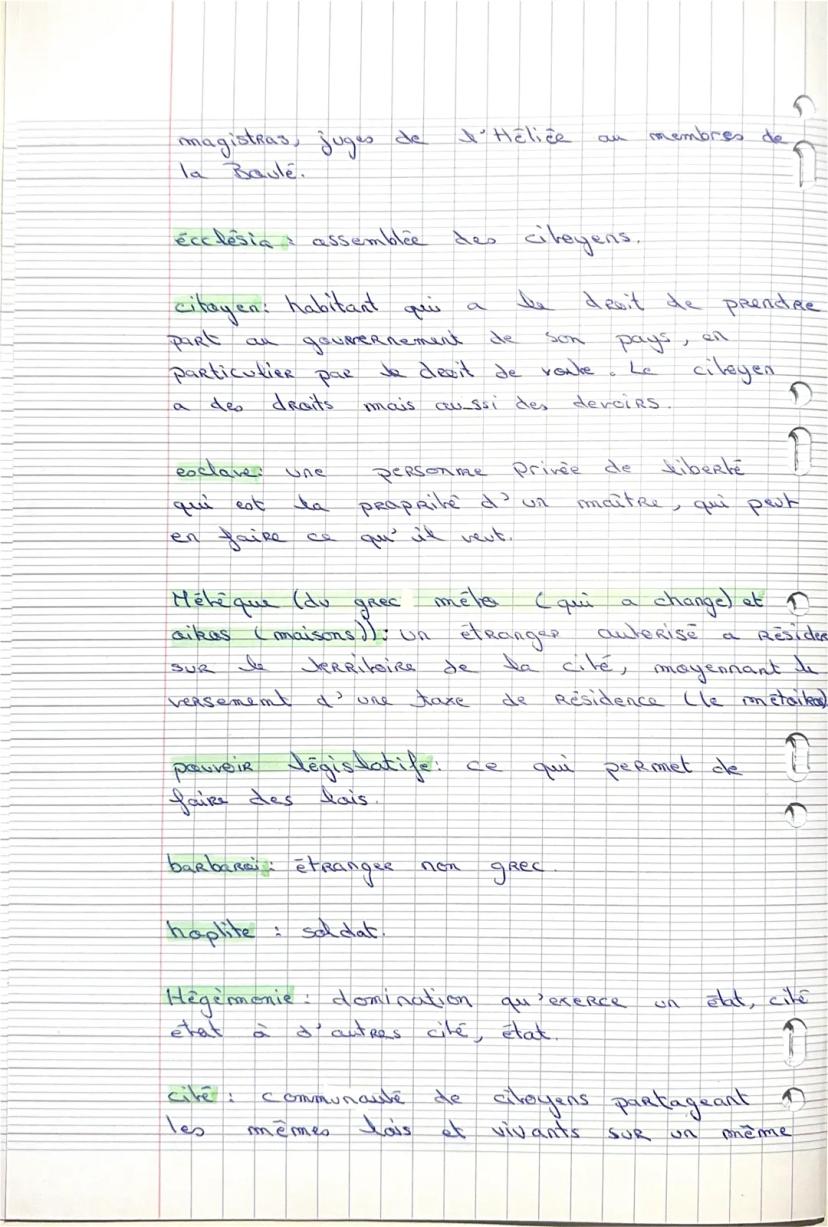 magistras, juges de l'Héliée au membres de
la Boulé.
écclésia : assemblée des citoyens.
citoyen : habitant qui a le droit de prendre
part au gouvernement de son pays, en
particulier par le droit de vote. Le citoyen
a des droits mais aussi des devoirs.
esclave : une personne privée de liberté
qui est la proprité d'un maître, qui peut
en faire ce qu'il veut.
Métèque (du grec méto (qui a change) et
oikos (maisons)) : un étranger autorisé a résider
sur le territoire de la cité, moyennant le
versement d'une taxe de résidence (le métoikos)
pouvoir législatife : ce qui permet de
faire des lois.
barbaroi : étranger non grec.
hoplite : soldat.
Hégémonie : domination qu'exerce un état, cité
état à d'autres cité, état.
cité : communauté de citoyens partageant
les mêmes lois et vivants sur un même